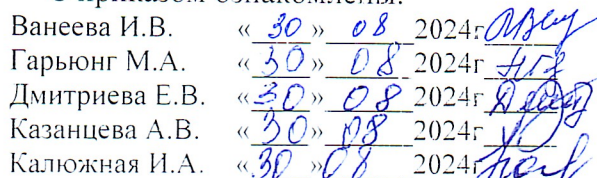 С приказом ознакомлены:
Ванеева И.В. « 30 » 08 2024г
Гарьюнг М.А. « 30 » 08 2024г
Дмитриева Е.В. « 30 » 08 2024г
Казанцева А.В. « 30 » 08 2024г
Калюжная И.А. « 30 » 08 2024г